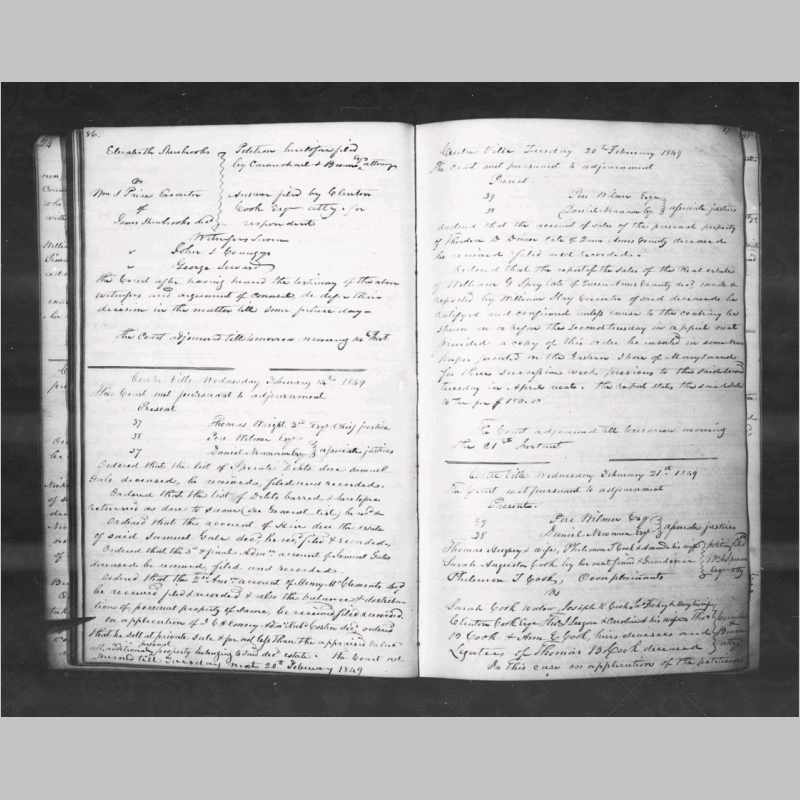 86.
Elizabeth Shenbrooks Petition heretofore filed
by Carmichael & Browne Esqs attorneys
vs
Wm S Price Executor Answer filed by Clinton
of Cook Esqr atty. for
James Shenbrooks decd respondent
Witnesses Sworn
" John S
" George Seward
the Court after having heard the testimony of the above
witnesses and argument of counsel do defer their
decision in the matter till some future day
The Court adjourned till tomorrow morning 10 O'Clock
Centre Ville Wednesday February 14th 1849
The Court met pursuant to adjournment
Present
37 Thomas Wright 3rd Esqr Chief justice
38 Pere Wilmer Esqr
37 Daniel Newnam Esqr associate justices
Ordered that the list of Sperate Debts due Samuel
Gale deceased, be received, filed and recorded.
Ordered that the list of Debts barred & hopeless
returned as due to same (see General list) be recd &c
Ordered that the account of due the estate
of said Samuel Gale decd be recd filed & recorded.
Ordered that the 3rd & final Admn account of Samuel Gale
deceased be received, filed and recorded.
Ordered that the 2nd account of Henry McClements decd
be received filed & recorded & also the balance & distribu-
tion of personal property of same, be received filed & recorded.
On application of J E Admr Robt Costin decd ordered
that he sell at private sale & for not less than the appraised value
all additional personal property belonging to said decd estate. The Court ad-
journed till Tuesday next 20th February 1849
Centre Ville Tuesday 20th February 1849
The Court met pursuant to adjournment
Present
39 Pere Wilmer Esqr
38 Daniel Newnam Esqr associate justices
Ordered that the account of sales of the personal property
of Theodore D late of Queen Anns County deceased
be received filed and recorded.
Ordered that the report of the sales of the Real estate
of William G Spry late of Queen Anns County decd made &
reported by William Executor of said deceased be
ratified and confirmed unless cause to the contrary be
shewn on or before the second tuesday in april next
provided a copy of this order be inserted in some news
paper printed on the Eastern Shore of Maryland
for three successive weeks previous to the said second
tuesday in April next. The report states the sales
to be for $
The Court adjourned till tomorrow morning
the 21st Instant
Centre Ville Wednesday February 21st 1849
The Court met pursuant to adjournment
Present.
39 Pere Wilmer Esqr
38 Daniel Newnam Esqr associate justices
Thomas & wife, Philemon T Cook & and his wife petition filed
Sarah Augustea Cook by his next friend & Guardian
Philemon T Cook, Complainants
vs
Sarah Cook Widow, Joseph
Clinton Cook Esqr Thos J & Caroline his wife Thos
B Cook & Ann E Cook, heirs devisees and
Legatees of Thomas B Cook deceased
In this case on application of the petitioners